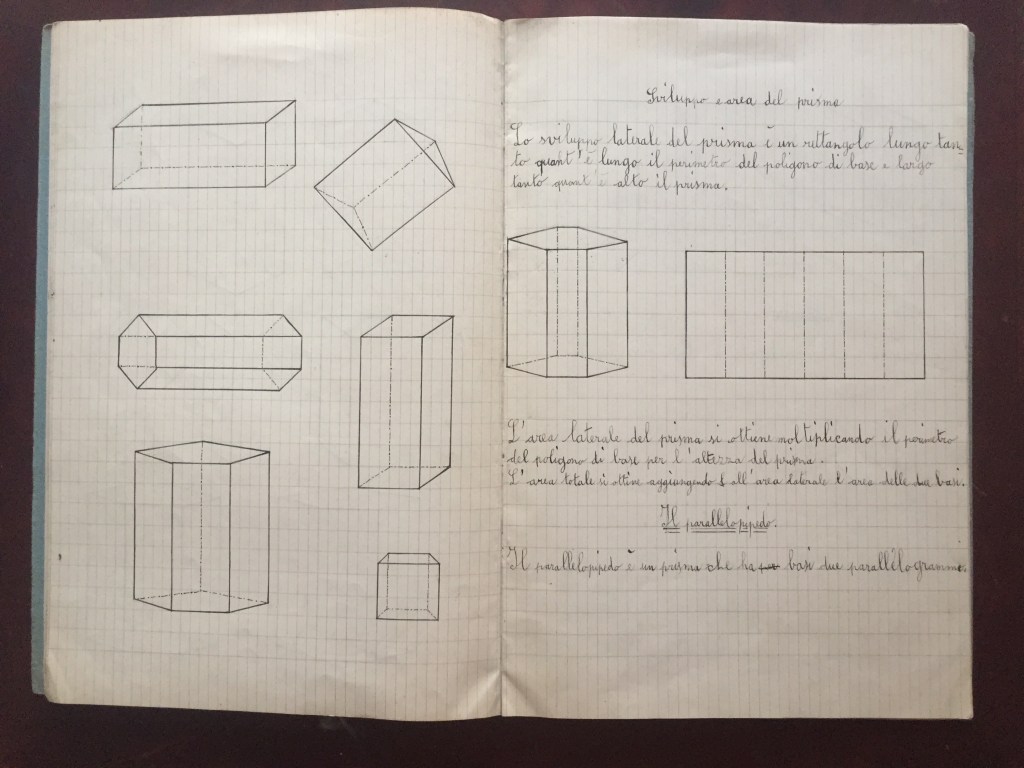 Sviluppo e area del prisma
Lo sviluppo laterale del prisma è un rettangolo lungo tan-
to quant'è lungo il perimetro del poligono di base e largo
tanto quant'è alto il prisma.
L'area laterale del prisma si ottiene moltiplicando il perimetro
del poligono di base per l'altezza del prisma.
L'area totale si ottine aggiungendo all'area laterale l'area delle due basi.
Il parallelopipedo.
Il parallelopipedo è un prisma che ha basi due parallélogrammi.